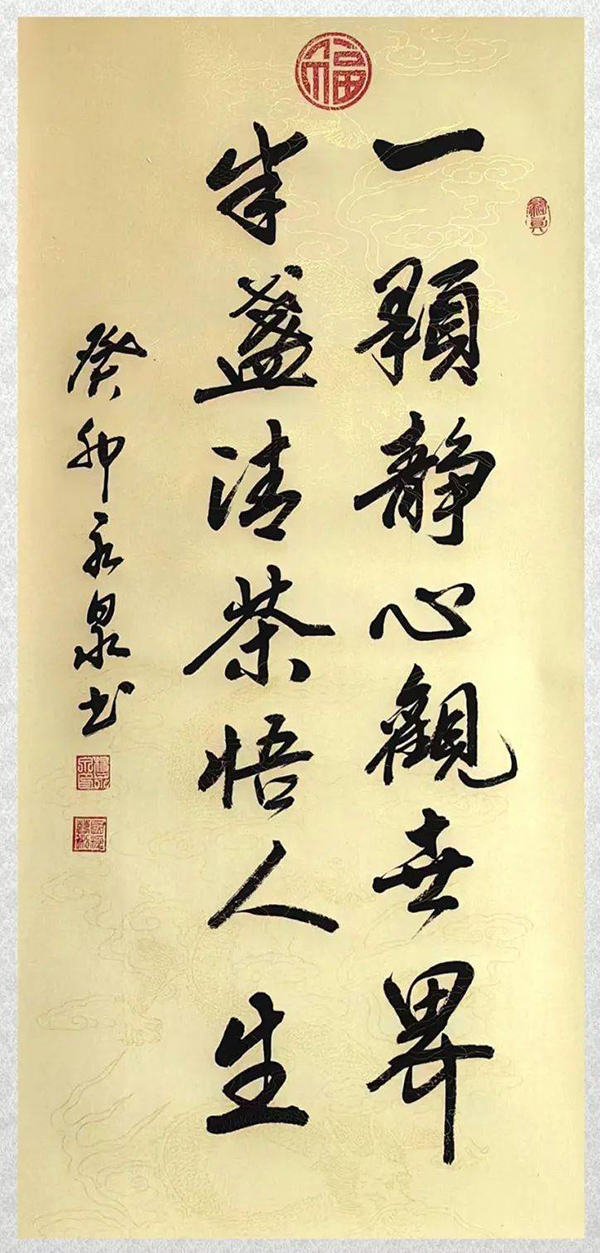 福
一顆静心觀世界
半盞清茶悟人生
癸卯永泉书